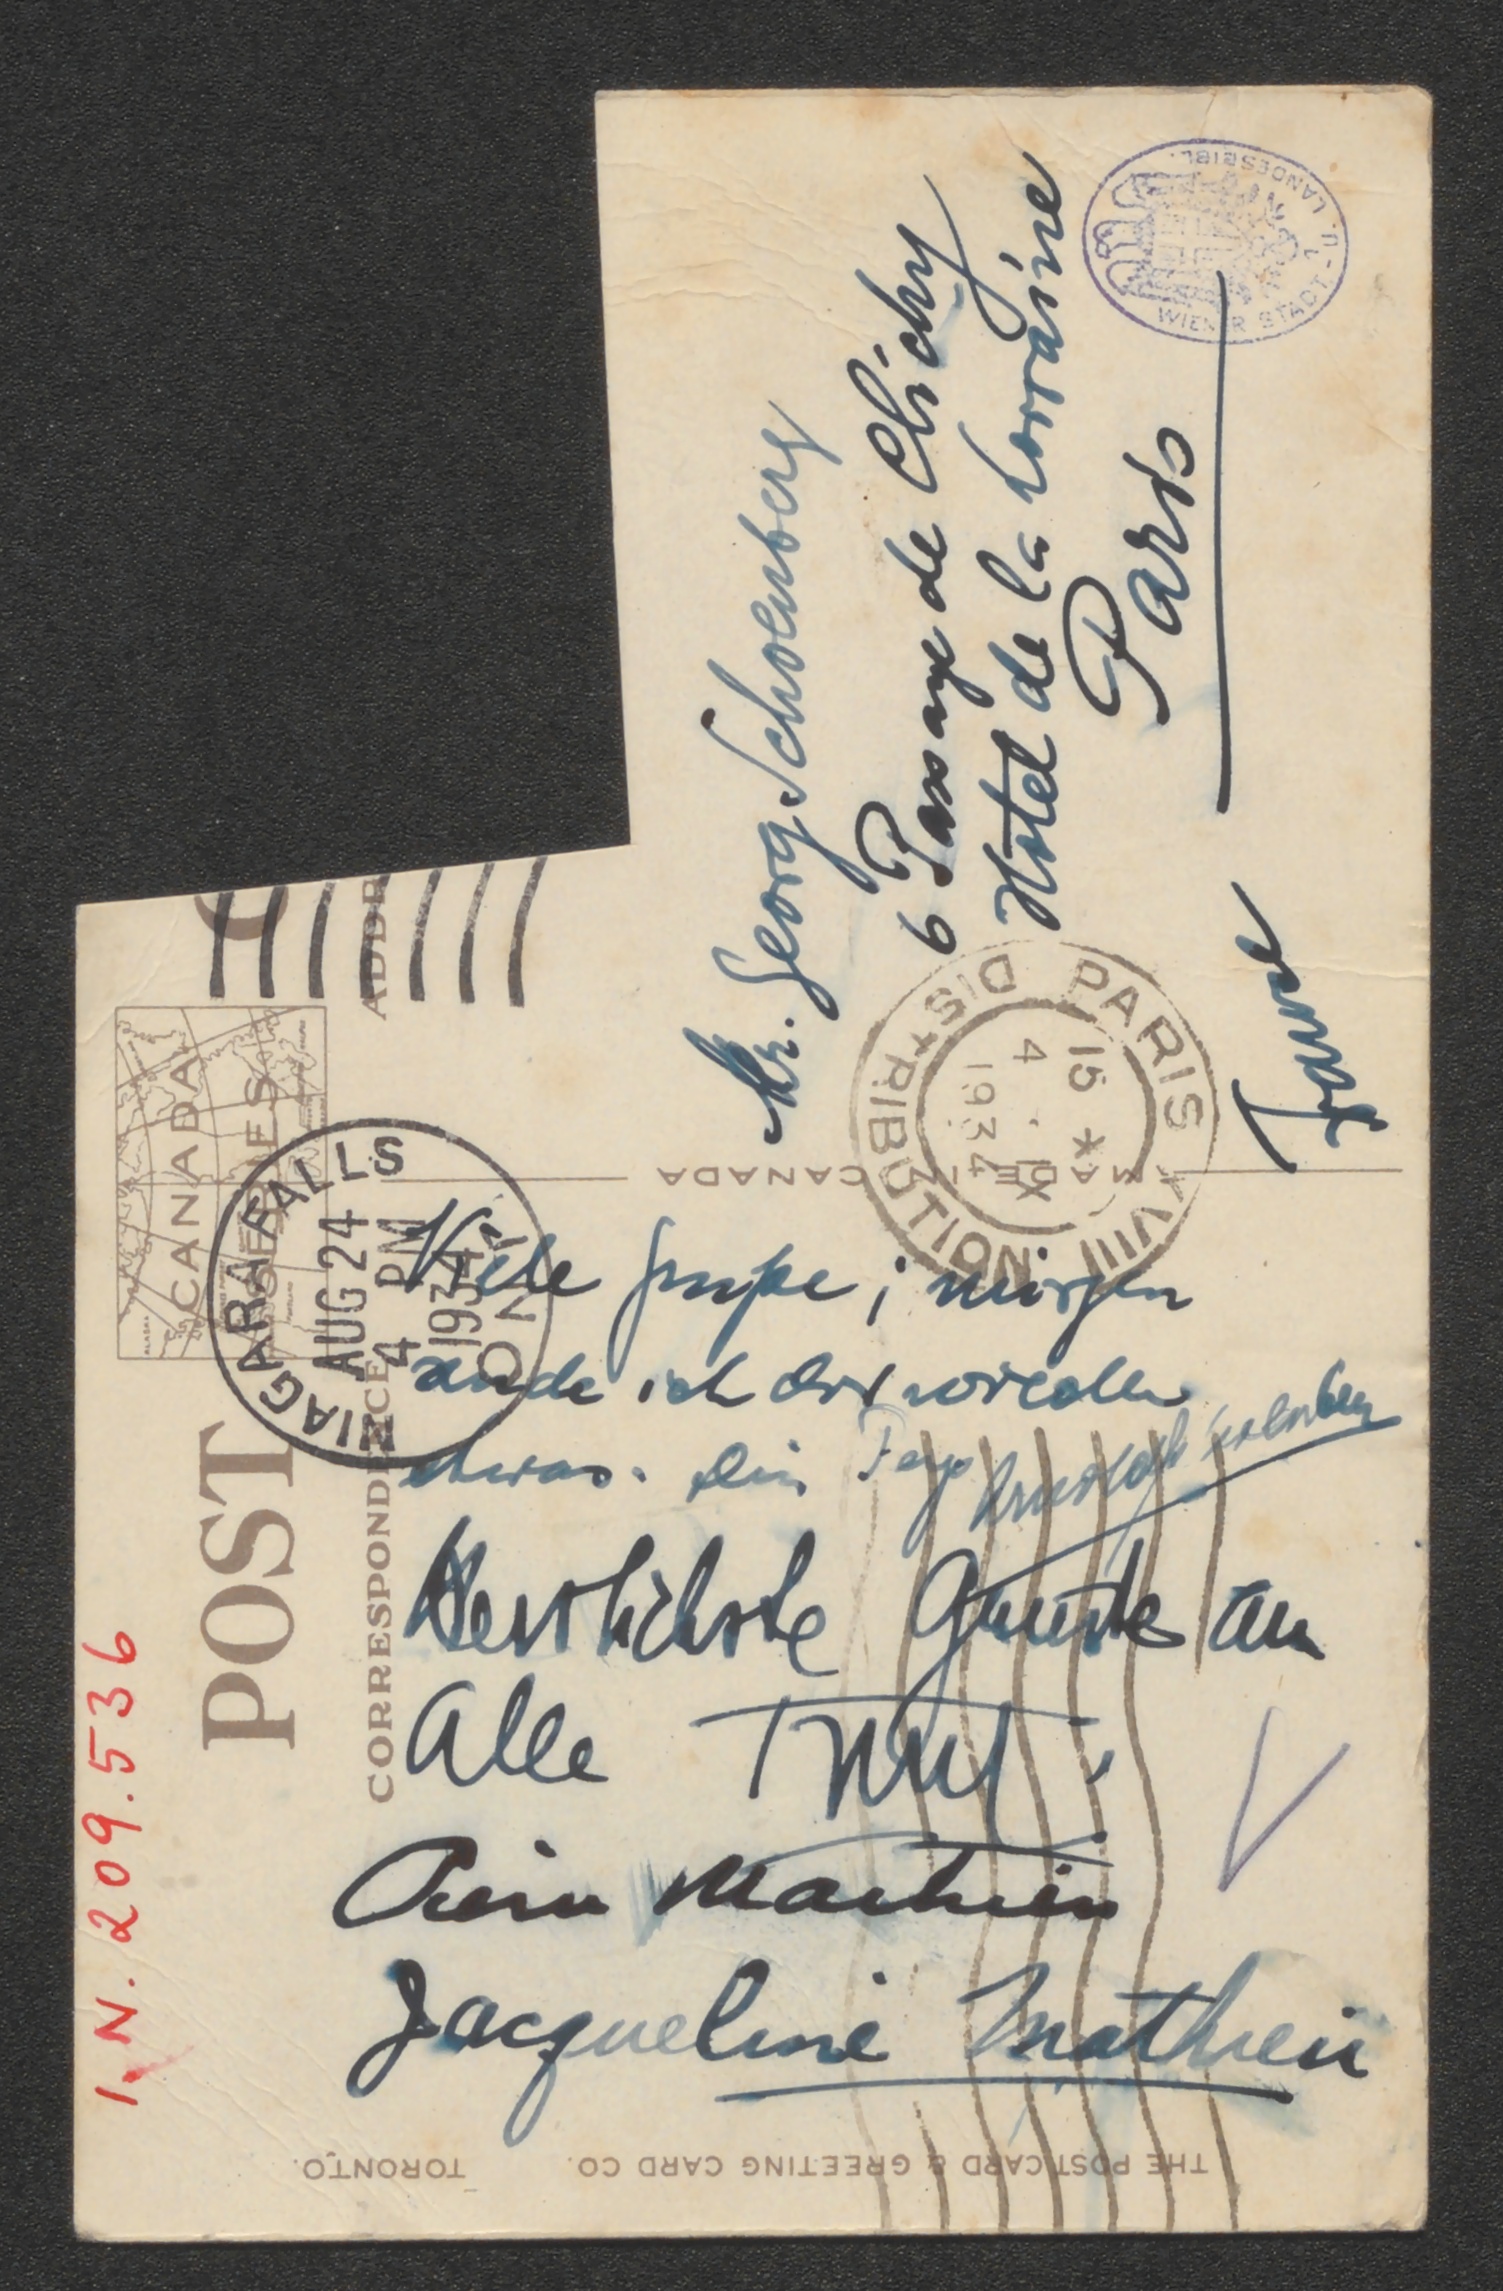 1.N. 209.536
CANADA
POST
C
CORRESPONDENCE
ADDR
NIAGARA FALLS
AUG 24
4 PM
1934
ONT
Viele Grüße; morgen
sende ich dir wieder
etwas. Dein Papa Arnold Schönberg
Herzlichste Grüße an
Alle Trudi
Mathieu
Jacqueline Mathieu
Mr. Georg Schoenberg
6 Passage de Clichy
Hotel de la Lorraine
Paris
France
PARIS VIII DISTRIBUTION
15 *
4 . IX
1934
MADE IN CANADA
WIENER STADT- U. LANDESBIBL.
THE POST CARD & GREETING CARD CO. TORONTO.